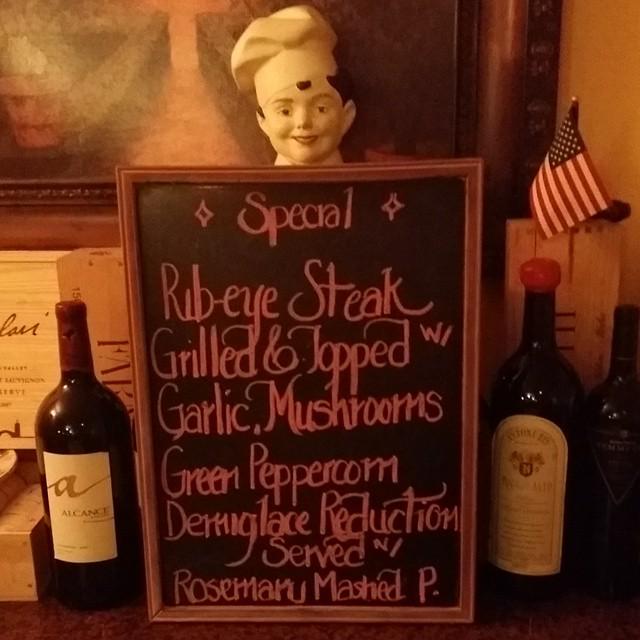 Special
Rib-eye Steak
Grilled & Topped w/
Garlic, Mushrooms
Green Peppercorn
Demiglace Reduction
Served w/
Rosemary Mashed P.
a
ALCANCE